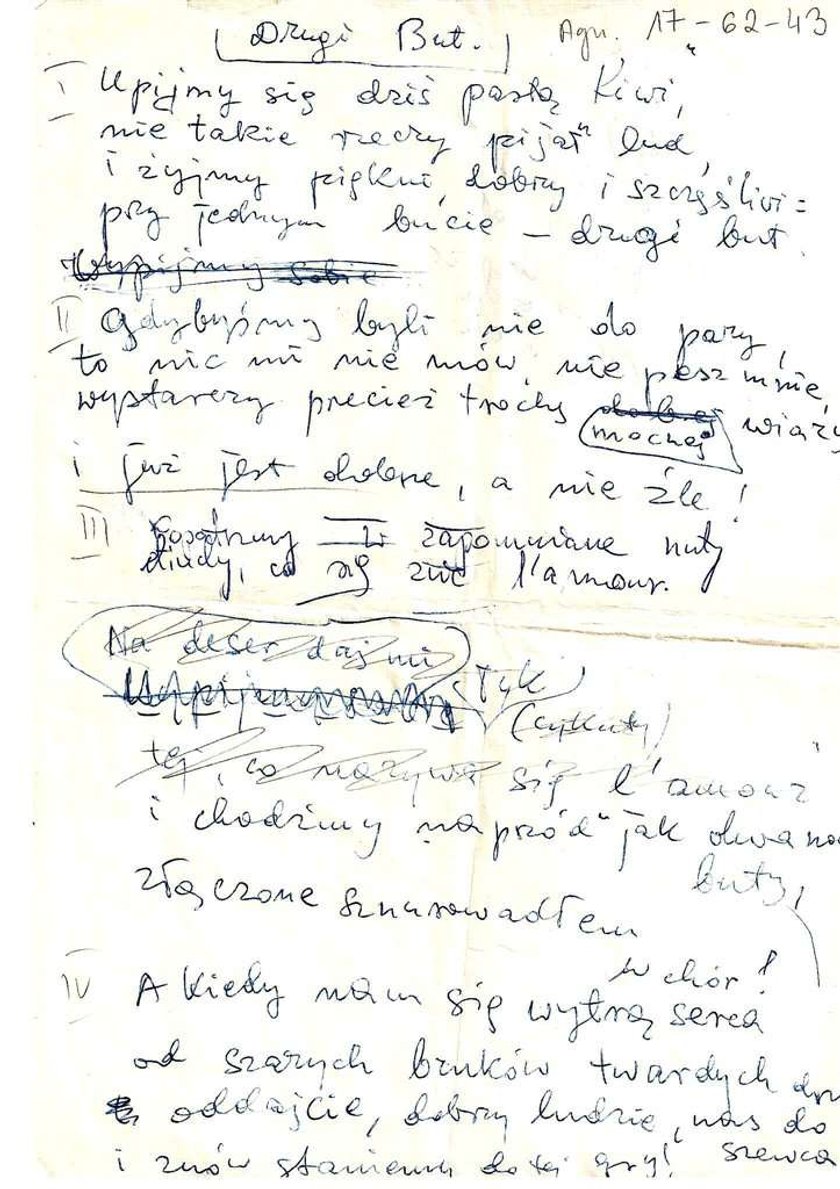 Drugi But.
Agn. 17-62-43
I Upijmy się dziś pastą Kiwi,
nie takie rzeczy pijał lud,
i żyjmy piękni, dobrzy i szczęśliwi:
przy jednym bucie – drugi but.
Wypijmy sobie
II Gdybyśmy byli nie do pary,
to nic mi nie mów, nie pesz mnie,
wystarczy przecież trochę mocnej wiary
i już jest dobrze, a nie źle!
III Popatrzmy w zapomniane nuty
etiudy, co się zwie l'amour.
Na deser daj mi
łyk
(cykuty)
tej, co nazywa się l'amour
i chodźmy naprzód jak dwa
buty,
złączone sznurowadłem
w chór!
IV A kiedy nam się wytrą serca
od szarych bruków twardych
oddajcie, dobrzy ludzie, nas do
szewca
i znów staniemy do tej gry!